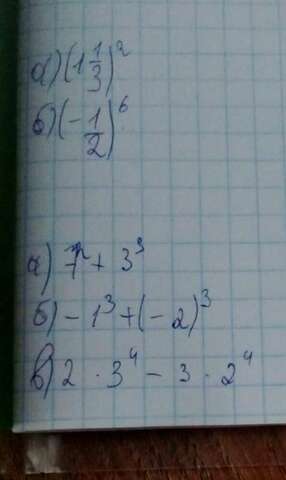 а) (1 1/3)²
б) (- 1/2)⁶
а) 7² + 3³
б) - 1³ + (- 2)³
в) 2 · 3⁴ - 3 · 2⁴